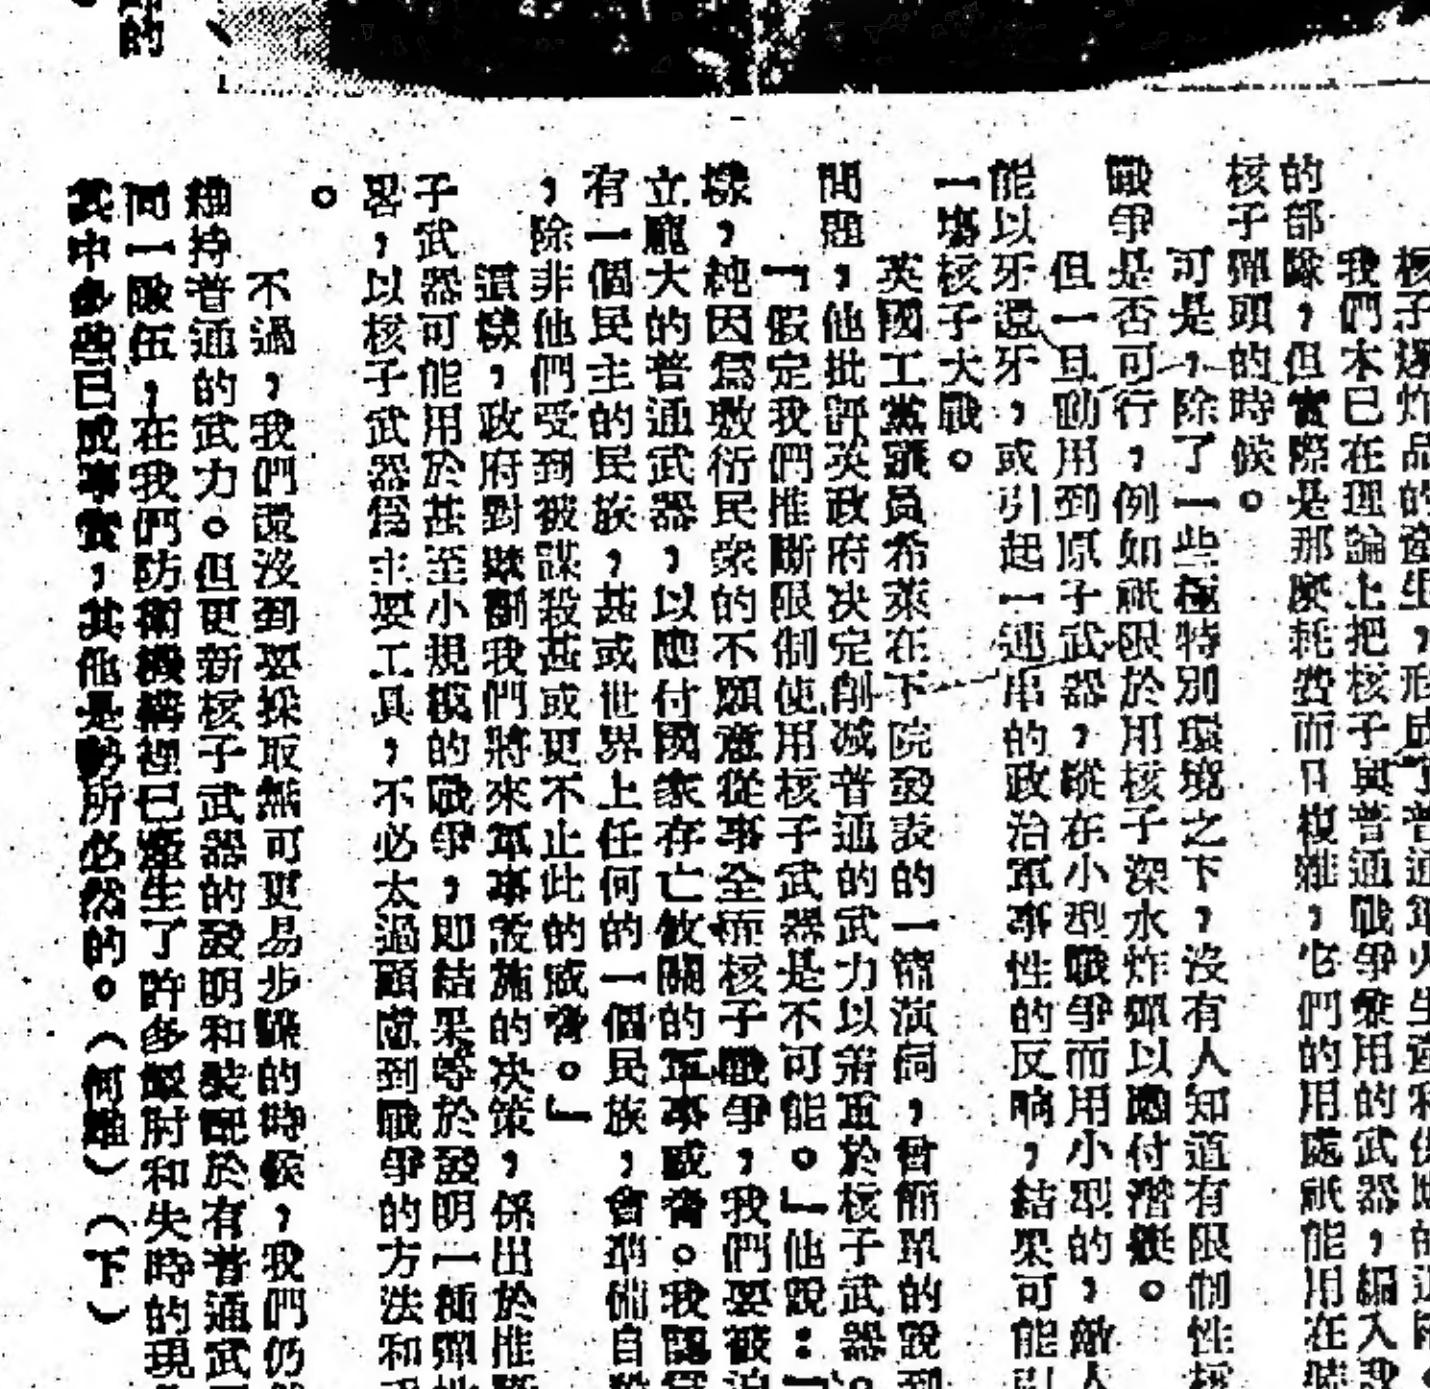 的
核子爆炸品的產生，形成了普通軍火生產和供應的
我們本已在理論上把核子與普通戰爭兼用的武器，編入我
的部隊，但實際是那麽耗費而且複雜，它們的用處祇能用在
核子彈頭的時候。
可是，除了一些極特別環境之下，沒有人知道有限制性核
戰爭是否可行，例如祇限於用核子深水炸彈以應付潛艇。
但一旦動用到原子武器，縱在小型戰爭而用小型的，敵人
能以牙還牙，或引起一連串的政治軍事性的反响，結果可能引
一塲核子大戰。
英國工黨議員希萊在下院發表的一篇演詞，曾簡單的說到
問題，他批評英政府决定削减普通的武力以着重於核子武器。
「假定我們推斷限制使用核子武器是不可能。」他說：「
樣，純因爲敷衍民衆的不願意從事全面核子戰爭，我們要被迫
立龐大的普通武器，以應付國家存亡攸關的軍事威脅。我認爲
有一個民主的民族，甚或世界上任何的一個民族，會準備自殺
，除非他們受到被謀殺甚或更不止此的威脅。」
這樣，政府對欺劃我們將來軍事設施的决策，係出於推斷
子武器可能用於甚至小規模的戰爭，即結果等於發明一種彈性
畧，以核子武器爲主要工具，不必太過顧慮到戰爭的方法和
。
不過，我們還沒到要採取無可更易步驟的時候，我們仍
維持普通的武力。但更新核子武器的發明和裝配於有普通武
同一隊伍，在我們防衛機構裡已產生了許多掣肘和失時的現
其中多些已成事實，其他是勢所必然的。（何雖）（下）